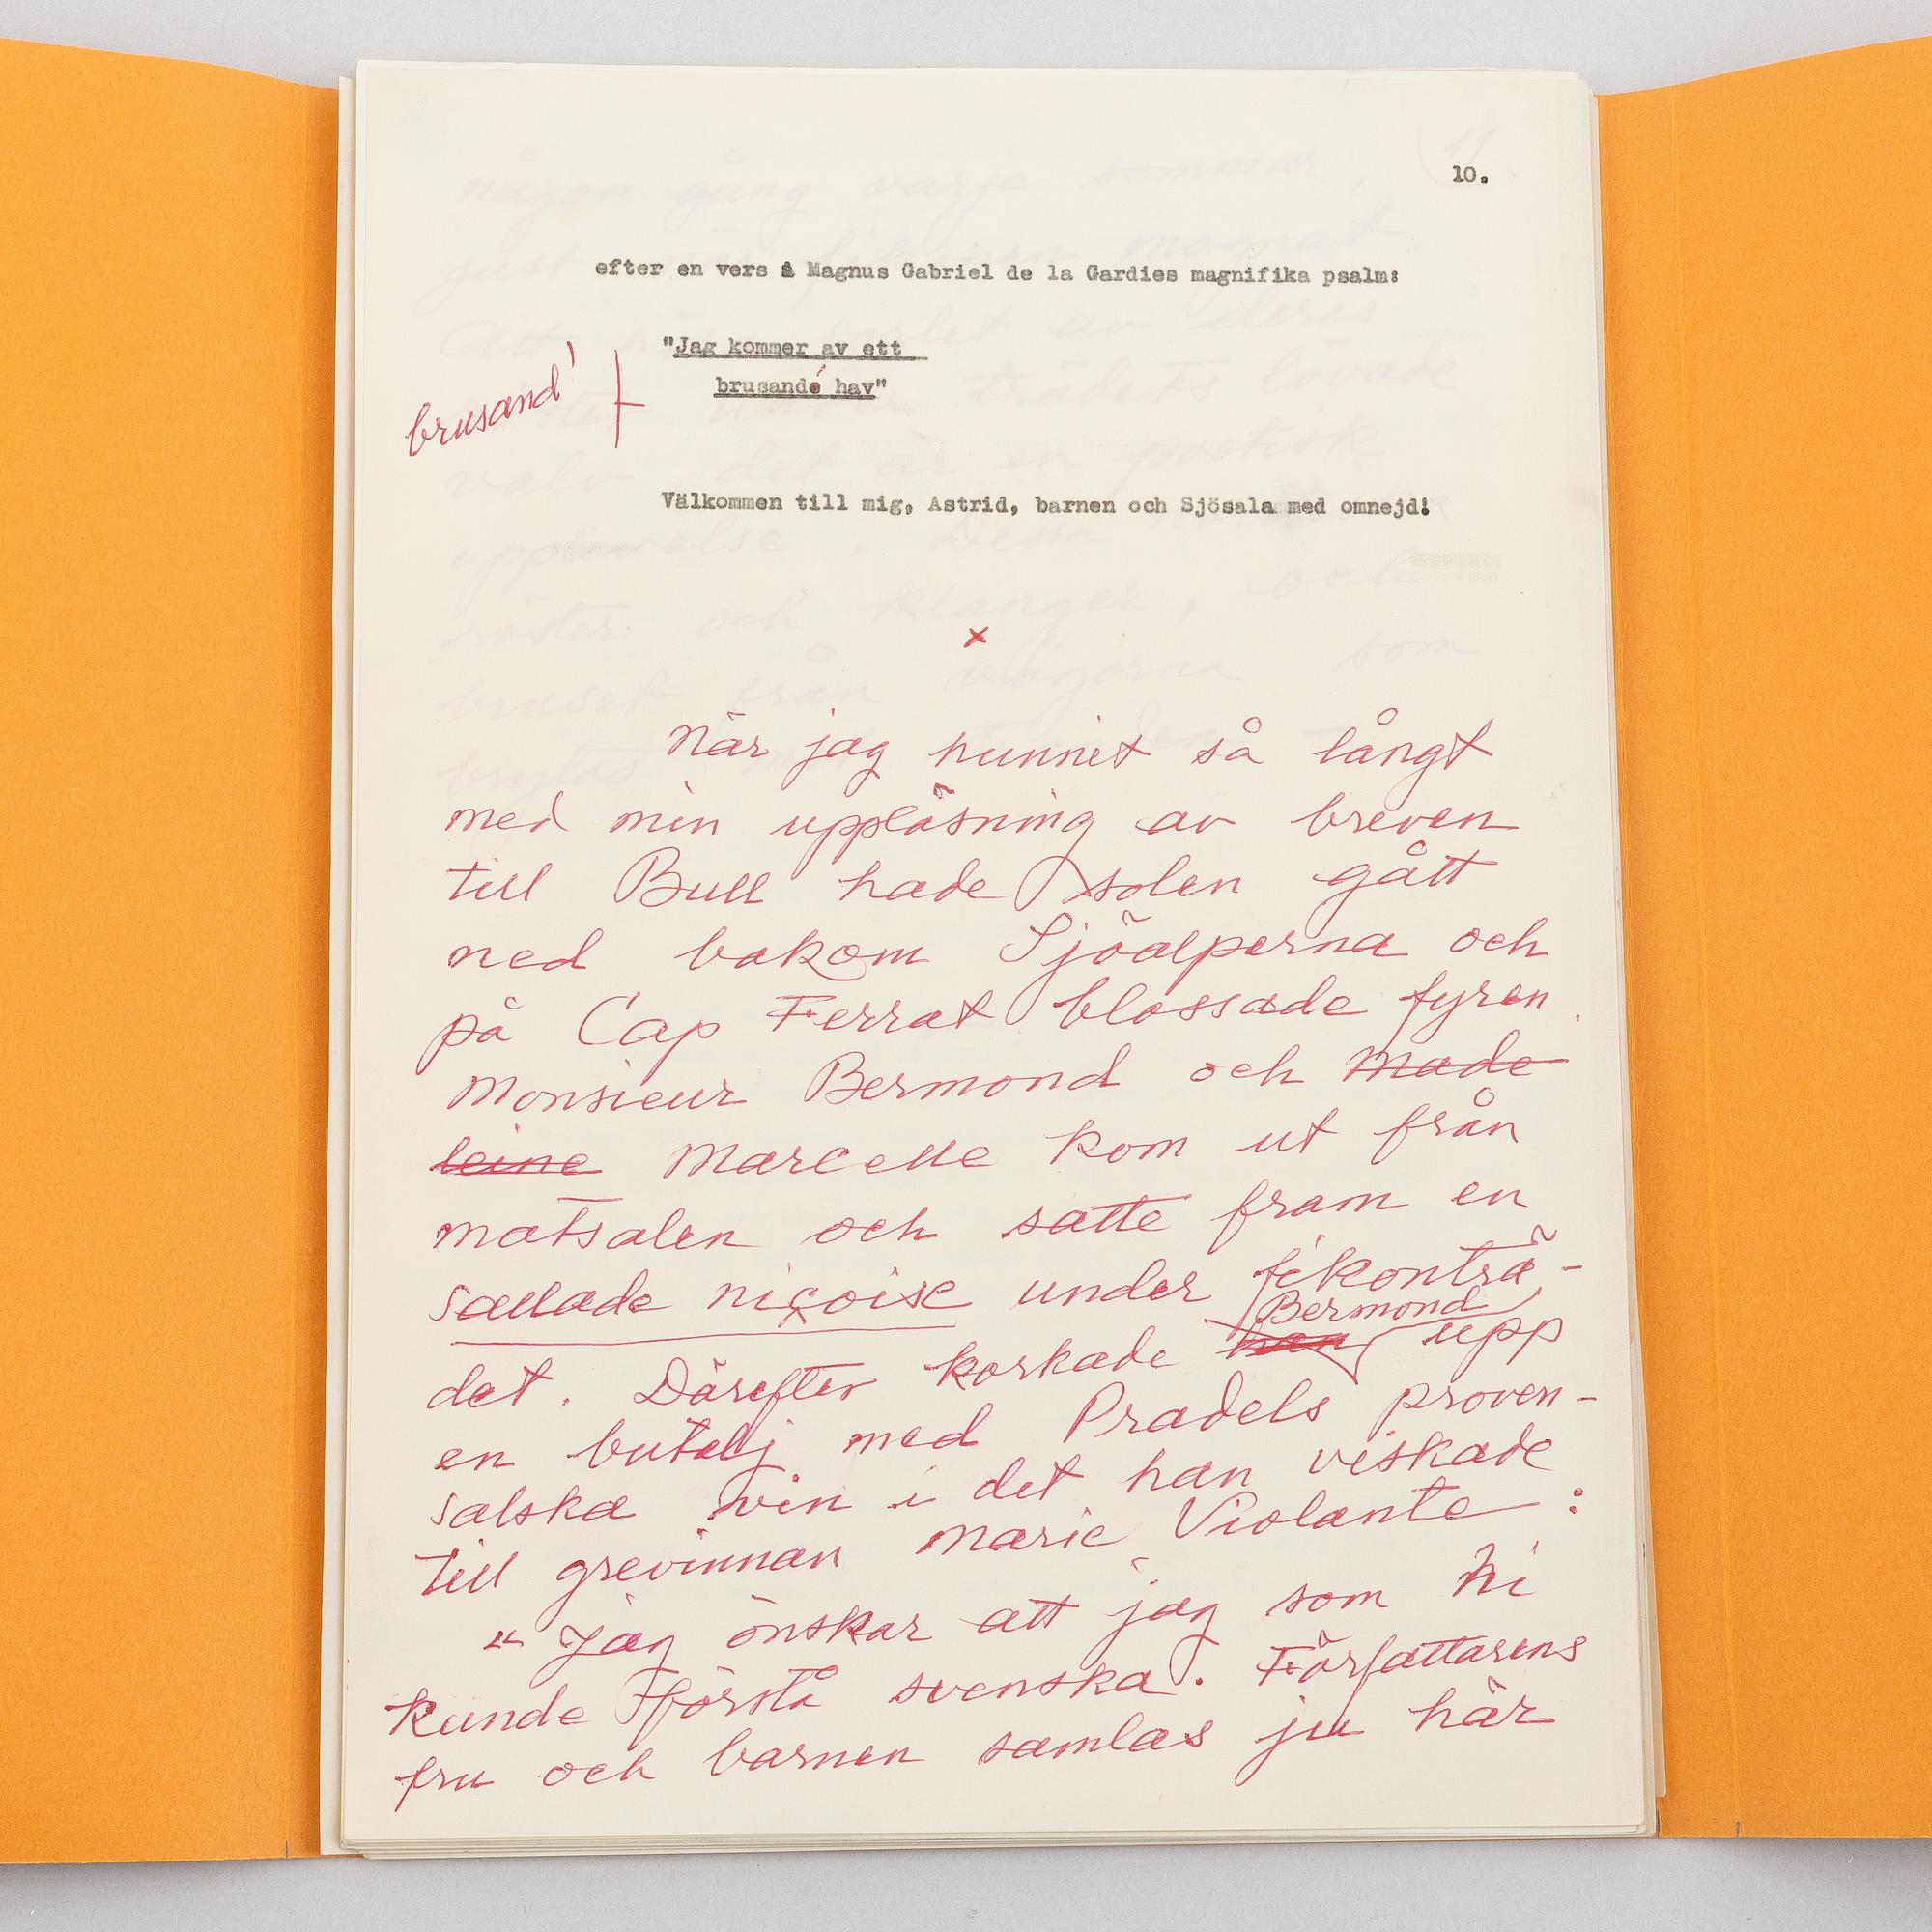 10.
efter en vers å Magnus Gabriel de la Gardies magnifika psalm:
"Jag kommer av ett
brusande hav"
brusand'
Välkommen till mig, Astrid, barnen och Sjösala med omnejd!
x
När jag hunnit så långt
med min uppläsning av breven
till Bull hade solen gått
ned bakom Sjöalperna och
på Cap Ferrat blossade fyren.
Monsieur Bermond och Made
leine Marcelle kom ut från
matsalen och satte fram en
sallade niçoise under fikonträ-
det. Därefter korkade han Bermond upp
en butelj med Pradels proven-
salska vin i det han viskade
till grevinnan Marie Violante:
"Jag önskar att jag som Ni
kunde förstå svenska. Författarens
fru och barnen samlas ju här